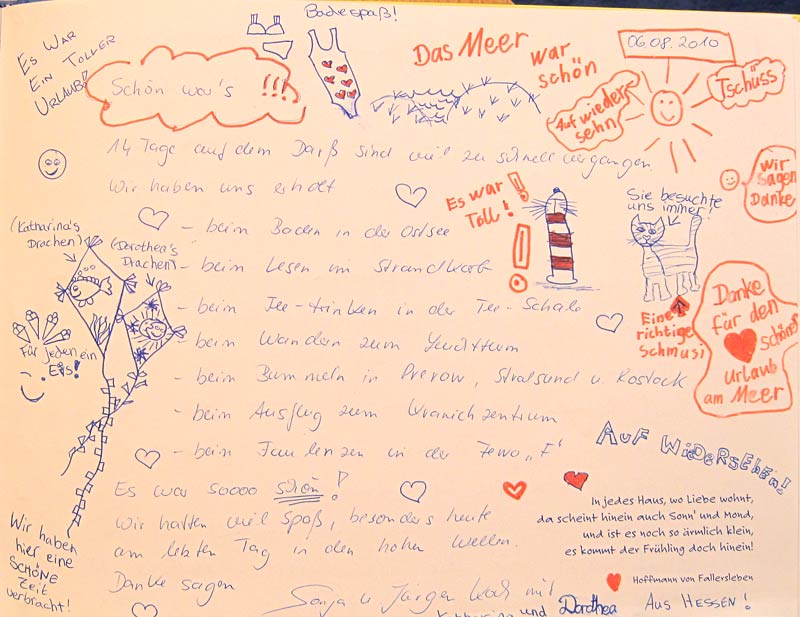 Es war
ein toller
Urlaub!
Badespaß!
Das Meer
war
schön
06.08.2010
Tschüss
Auf wieder
sehn
Schön war's !!!
14 Tage auf dem Darß sind viel zu schnell vergangen.
Wir haben uns erholt
Wir
sagen
Danke
Es war
Toll!
Sie besuchte
uns immer!
(Katharina's
Drachen)
(Dorothea's
Drachen)
- beim Baden in der Ostsee
- beim Lesen im Strandkorb
- beim Tee-trinken in der Tee-Schale
- beim Wandern zum Leuchtturm
- beim Bummeln in Prerow, Stralsund u. Rostock
- beim Ausflug zum Kranichzentrum
- beim Faulenzen in der Fewo "F"
Für jeden ein
Eis!
Eine
richtige
Schmusi
Danke
für den
schönen
Urlaub
am Meer
Auf Wiedersehen!
Es war soooo schön!
Wir hatten viel Spaß, besonders heute
am letzten Tag in den hohen Wellen.
Danke sagen
Sonja u. Jürgen Koch mit
Katharina und Dorothea
Aus Hessen!
Wir haben
hier eine
schöne
Zeit
verbracht!
In jedes Haus, wo Liebe wohnt,
da scheint hinein auch Sonn' und Mond,
und ist es noch so ärmlich klein,
es kommt der Frühling doch hinein!
Hoffmann von Fallersleben